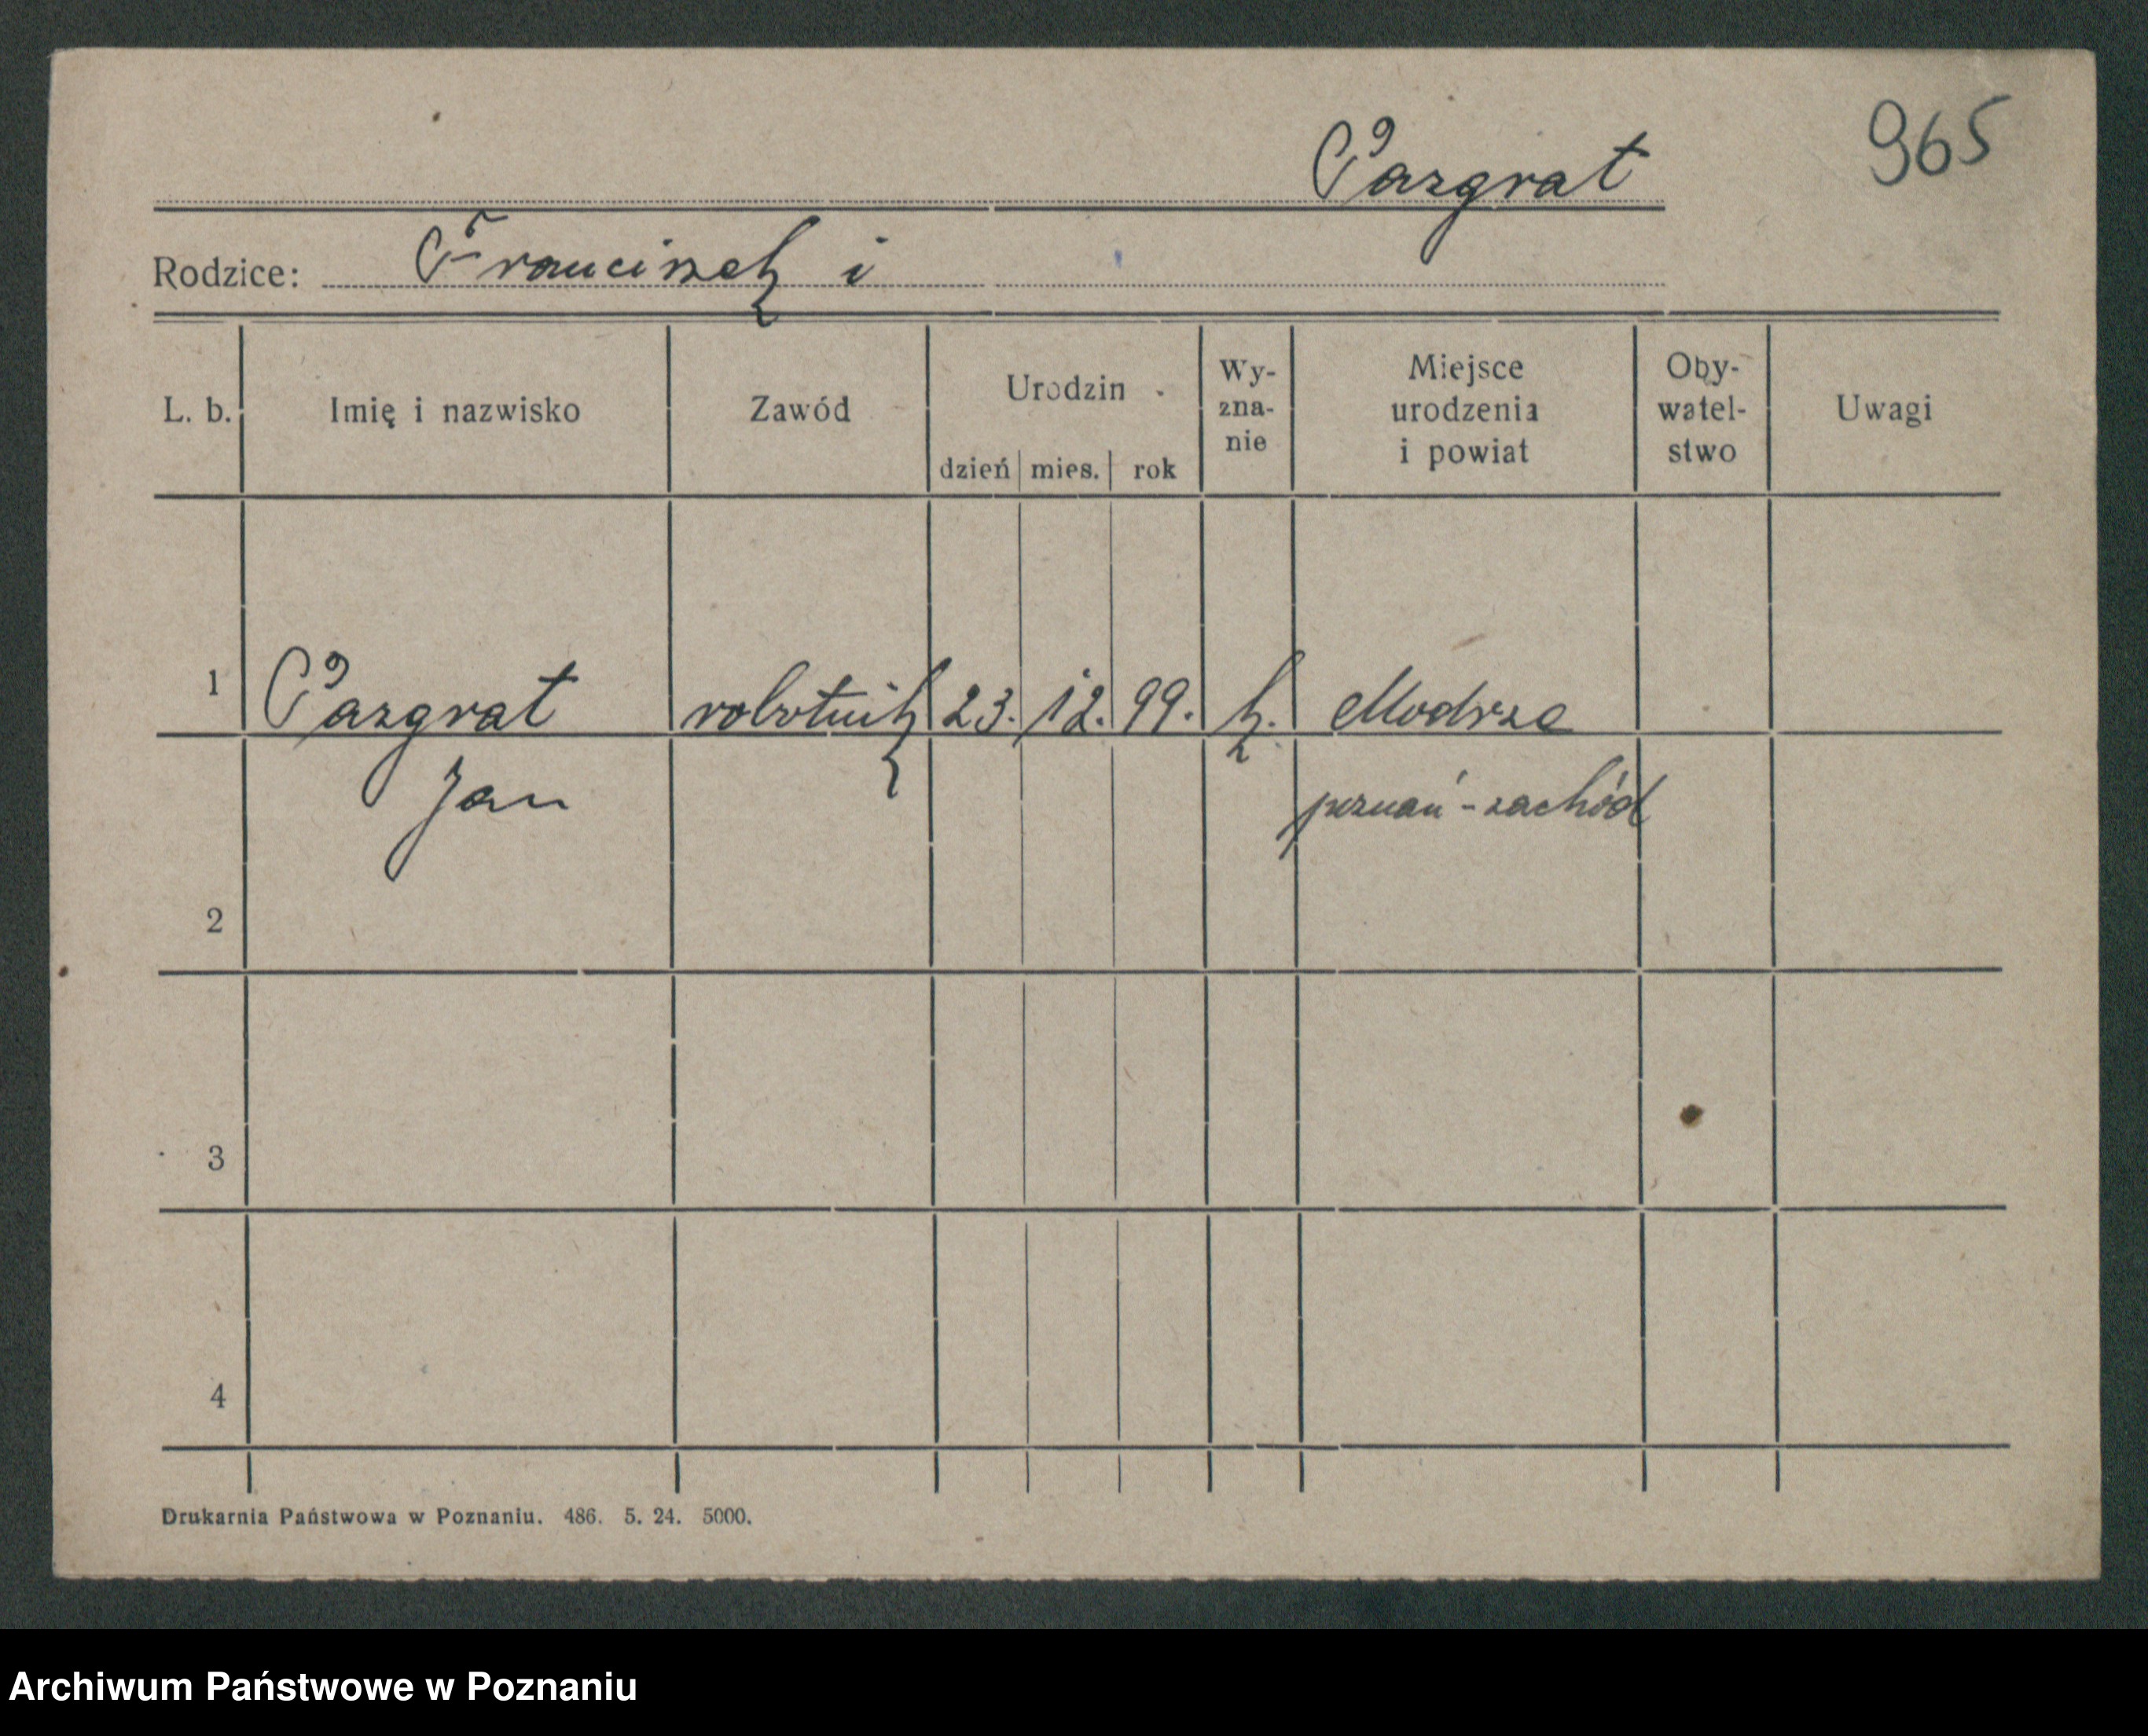 965
Pazgrat
Rodzice: Franciszek i
L. b. Imię i nazwisko Zawód Urodzin Wy-zna-nie Miejsce urodzenia i powiat Oby-watel-stwo Uwagi
dzień mies. rok
1 Pazgrat robotnik 23. 12. 99. k. Modrze
Jan poznań-zachód
2
3
4
Drukarnia Państwowa w Poznaniu. 486. 5. 24. 5000.
Archiwum Państwowe w Poznaniu